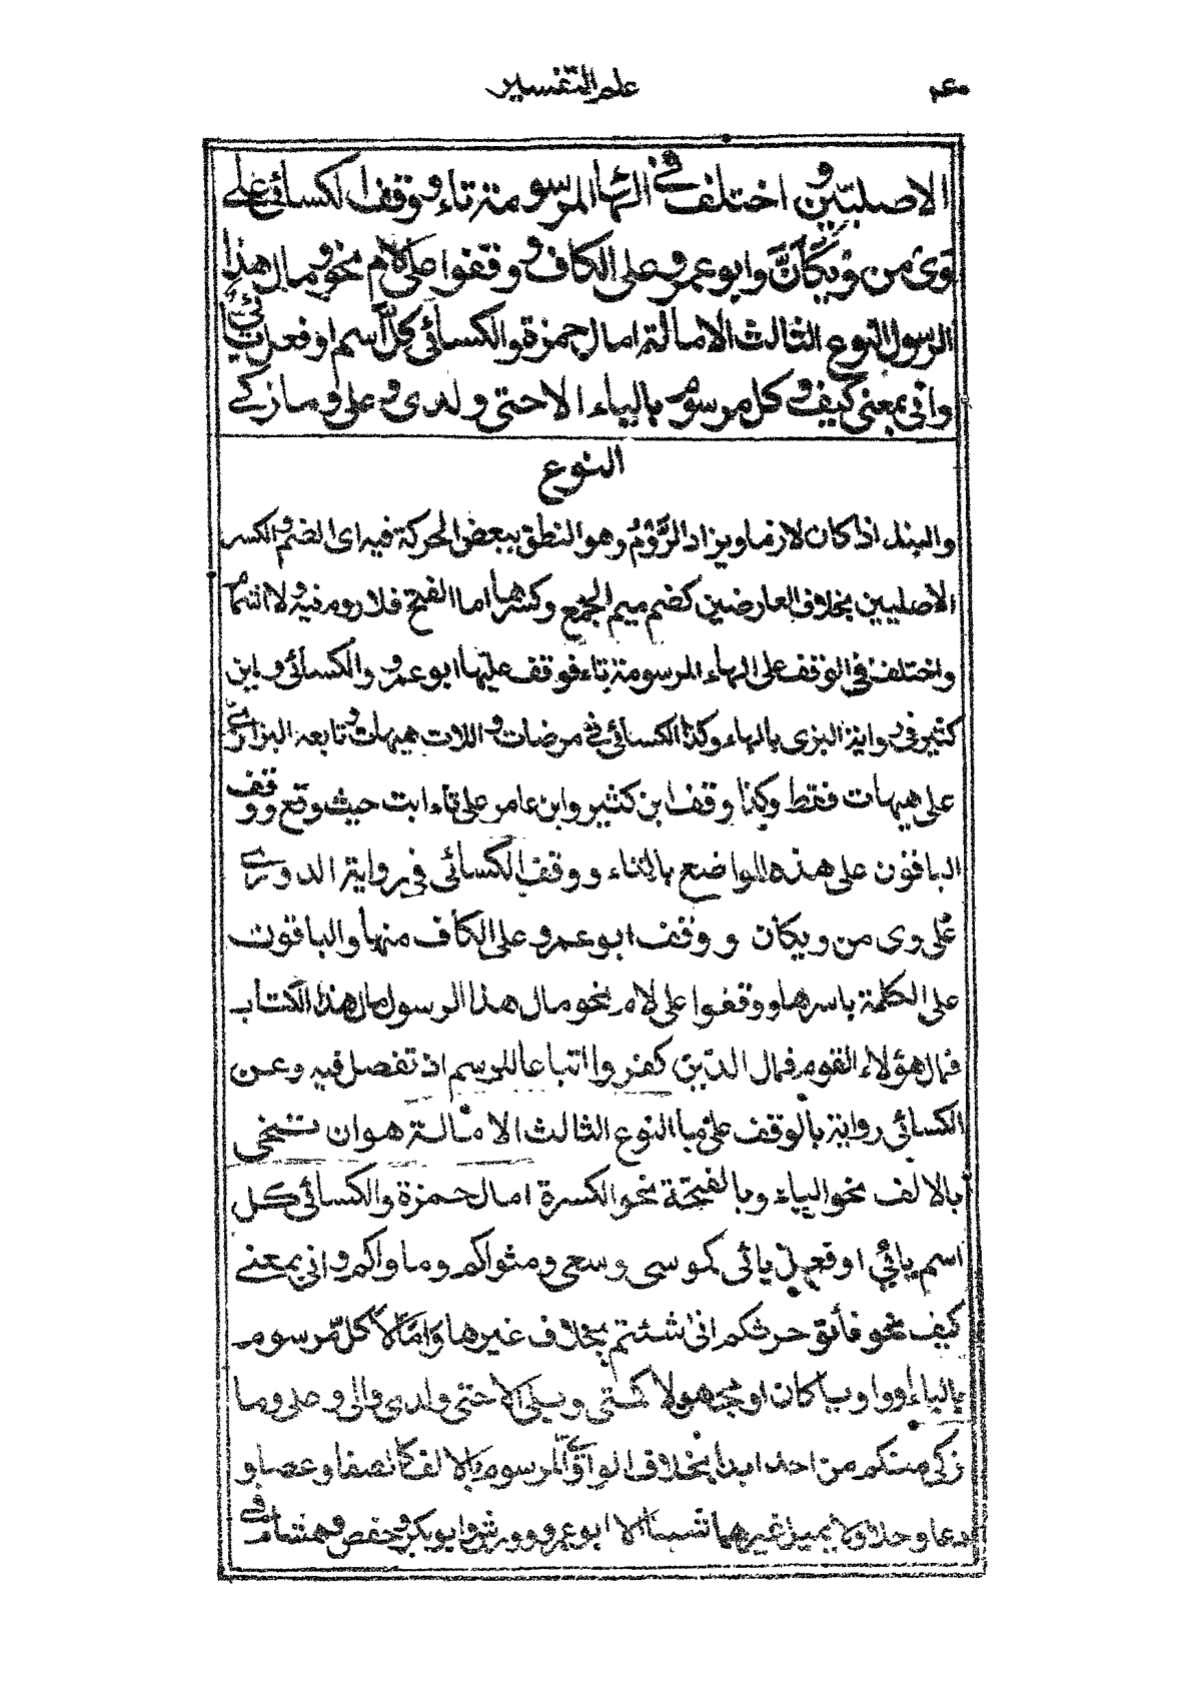 علم التفسير
الاصليين و اختلف في الهاء المرسومة تاء و وقف الكسائي على
وى من ويكأنّ وابو عمرو على الكاف و وقفوا على لام نحو و مال هذا
الرسول النوع الثالث الامالة امال حمزة والكسائي كلّ اسم او فعل يائيّ
وانى بمعنى كيف و كل مرسوم بالياء الا حتى ولدى و على وما زكى
النوع
والبدل اذا كان لازما ويزاد الرَّوْمُ وهو النطق ببعض الحركة فيه اى الضم و الكسر
الاصليين بخلاف العارضين كضم ميم الجمع وكسرها اما الفتح فلا روم فيه ولا اشمام
واختلف فى الوقف على الهاء المرسومة بتاء فوقف عليها ابو عمرو والكسائى وابن
كثير فى رواية البزى بالهاء وكذا الكسائى فى مرضات و اللات هيهات وتابعه البزى
على هيهات فقط وكذا وقف ابن كثير وابن عامر على تاء ابت حيث وقع ووقف
الباقون على هذه المواضع بالتاء ووقف الكسائى فى رواية الدورى
على وى من ويكان و وقف ابو عمرو على الكاف منها والباقون
على الكلمة باسرها ووقفوا على لام نحو مال هذا الرسول مال هذا الكتاب
فمال هؤلاء القوم فمال الذين كفروا اتباعا للرسم اذ تفصل فيه وعن
الكسائى رواية بالوقف على ما النوع الثالث الامالة هو ان تنحى
بالالف نحو الياء وبالفتحة نحو الكسرة امال حمزة والكسائى كل
اسم يائي او فعل يائى كموسى وسعى ومثواكم وماواكم و انى بمعنى
كيف نحو فأتو حرثكم انى شئتم بخلاف غيرها وامالا كل مرسوم
بالياء واويا كان او مجهولا كمتى وبلى الا حتى ولدى والى و على وما
زكى منكم من احد ابدا بخلاف الواوى المرسوم بالالف كالصفا وعصا و
دعا وخلا ولا يميل غيرهما شيئا الا ابو عمرو و ورش وابو بكر وحفص و هشام فى